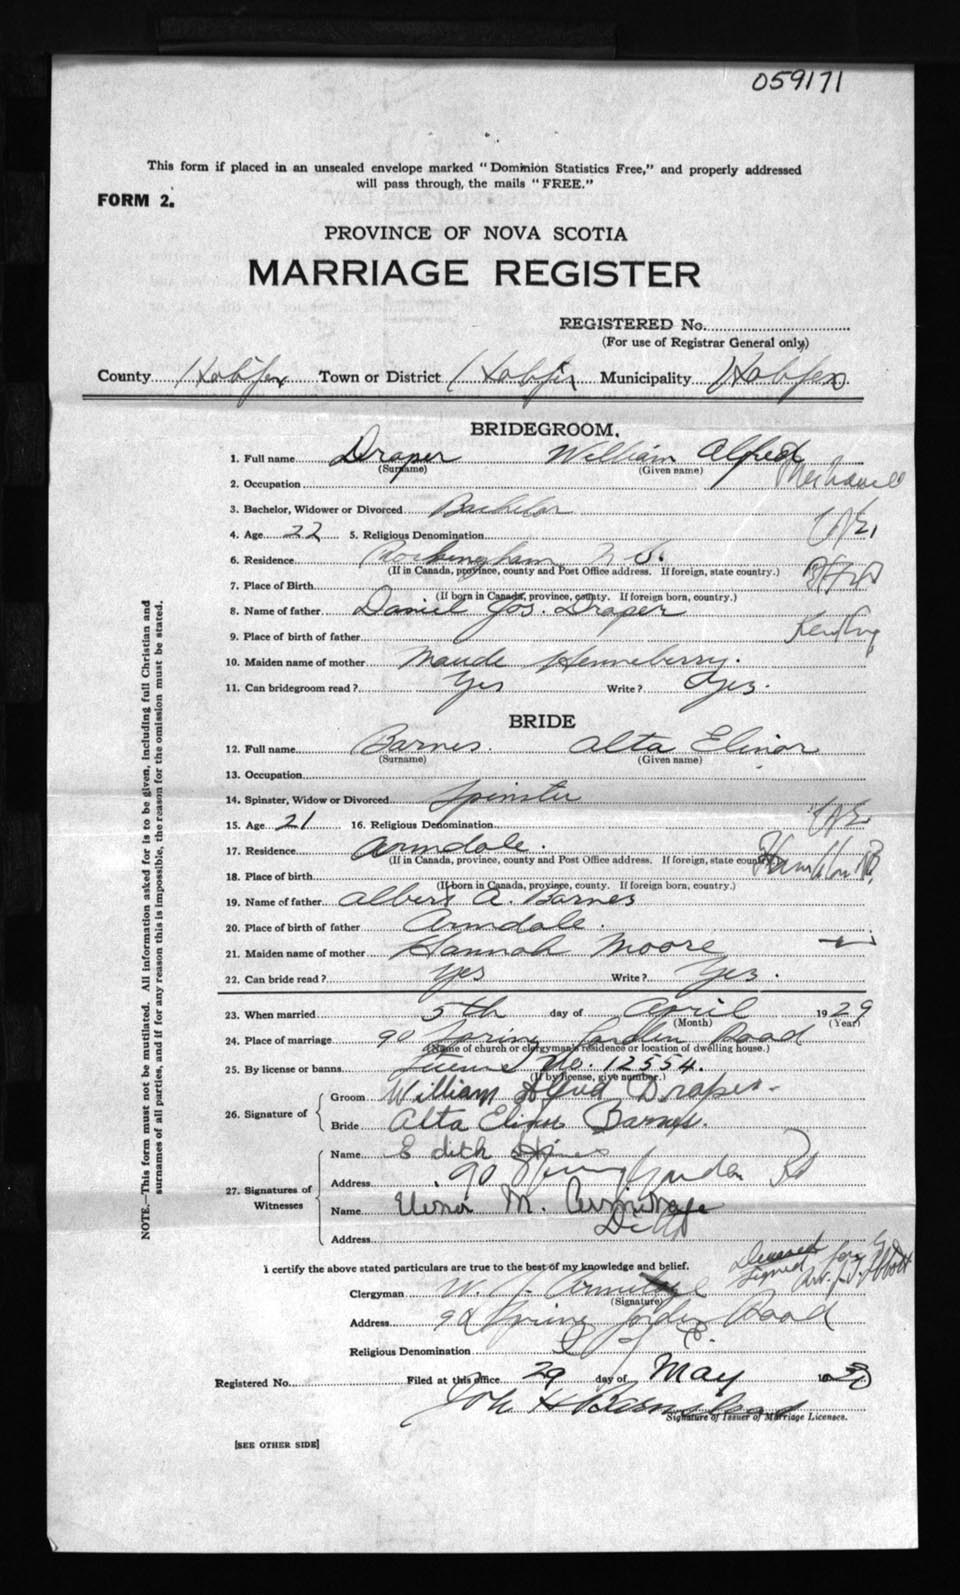 059171
This form if placed in an unsealed envelope marked "Dominion Statistics Free," and properly addressed
will pass through, the mails "FREE."
FORM 2.
PROVINCE OF NOVA SCOTIA
MARRIAGE REGISTER
REGISTERED No.
(For use of Registrar General only)
County Halifax Town or District Halifax Municipality Halifax
BRIDEGROOM.
1. Full name Draper William Alfred
(Surname) (Given name)
2. Occupation
3. Bachelor, Widower or Divorced Bachelor
4. Age 22 5. Religious Denomination
6. Residence Rockingham N.S.
(If in Canada, province, county and Post Office address. If foreign, state country.)
7. Place of Birth
(If born in Canada, province, county. If foreign born, country.)
8. Name of father Daniel Jos. Draper
9. Place of birth of father
10. Maiden name of mother Maude Henneberry.
11. Can bridegroom read? Yes Write? Yes.
BRIDE
12. Full name Barnes. Alta Elinor
(Surname) (Given name)
13. Occupation
14. Spinster, Widow or Divorced Spinster
15. Age 21 16. Religious Denomination
17. Residence Armdale.
(If in Canada, province, county and Post Office address. If foreign, state country.)
18. Place of birth
(If born in Canada, province, county. If foreign born, country.)
19. Name of father Albert A. Barnes
20. Place of birth of father Armdale.
21. Maiden name of mother Hannah Moore
22. Can bride read? Yes Write? Yes.
23. When married 5th day of April 1929
(Month) (Year)
24. Place of marriage 90 Spring Garden Road
(Name of church or clergyman's residence or location of dwelling house.)
25. By license or banns No. 12554.
(If by license, give number.)
26. Signature of
Groom William Alfred Draper
Bride Alta Elinor Barnes.
27. Signatures of Witnesses
Name Edith
Address 90 Spring Garden Rd
Name Elinor M. Armitage
Address Ditto
I certify the above stated particulars are true to the best of my knowledge and belief.
Deceased
Signed for
Clergyman W. J. Armitage
(Signature)
Address 90 Spring Garden Road
Religious Denomination
Registered No. Filed at this office 29 day of May 19
Signature of Issuer of Marriage Licenses.
[SEE OTHER SIDE]
NOTE.—This form must not be mutilated. All information asked for is to be given, including full Christian and
surnames of all parties, and if for any reason this is impossible, the reason for the omission must be stated.